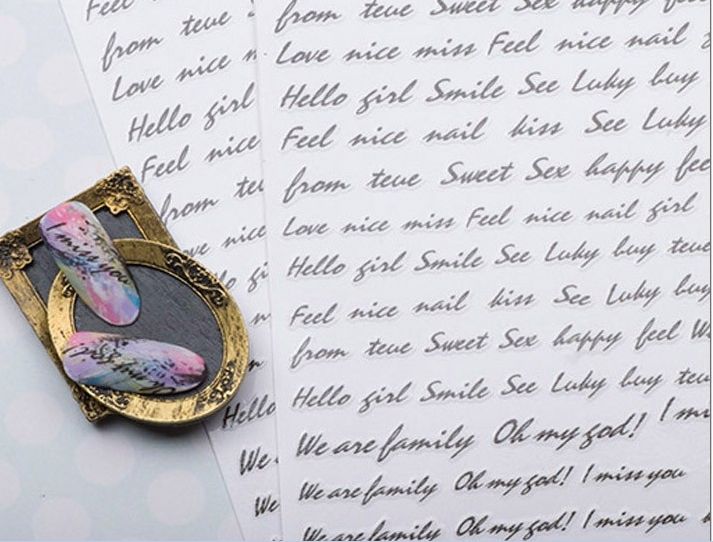 from teue Sweet Sex happy fee
Love nice miss Feel nice nail
Hello girl Smile See Luky buy
Feel nice nail kiss See Luky
from teue Sweet Sex happy fee
Love nice miss Feel nice nail girl
Hello girl Smile See Luky buy teue
Feel nice nail kiss See Luky buy
from teue Sweet Sex happy feel
Hello girl Smile See Luky buy teu
We are family Oh my god! I mi
We are family Oh my god! I miss you
We are family Oh my god! I miss you
Feel
from teue
Love nice
Hello girl
Feel nice
from
nice
Hello
We
We
I miss you